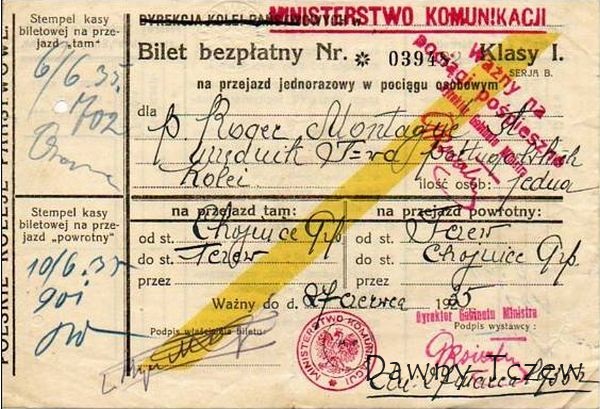 MINISTERSTWO KOMUNIKACJI
DYREKCJA KOLEI PAŃSTWOWYCH w
Stempel kasy
biletowej na prze-
jazd „tam“
6/6.35.
702
Bilet bezpłatny Nr. * 039452 Klasy I.
SERJA B.
na przejazd jednorazowy w pociągu osobowym
Ważny na
pociągi pośpieszne
Dyrektor Gabinetu Ministra
dla p. Roger Montague
urzędnik
Kolei
ilość osób: jedna
POLSKIE KOLEJE PAŃSTWOWE
Stempel kasy
biletowej na prze-
jazd „powrotny“
10/6.35
901
na przejazd tam:
od st. Chojnice Grp.
do st. Tczew
przez
na przejazd powrotny:
od st. Tczew
do st. Chojnice Grp.
przez
Ważny do d. 27 czerwca 1935
Podpis właściciela biletu:
MINISTERSTWO KOMUNIKACJI
Dyrektor Gabinetu Ministra
Podpis wystawcy:
Dawny Tczew
27 marca 1935